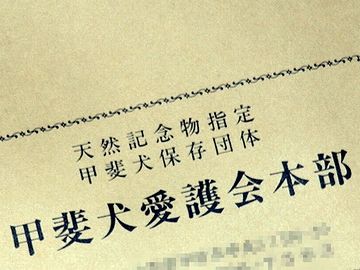 天然記念物指定
甲斐犬保存団体
甲斐犬愛護会本部